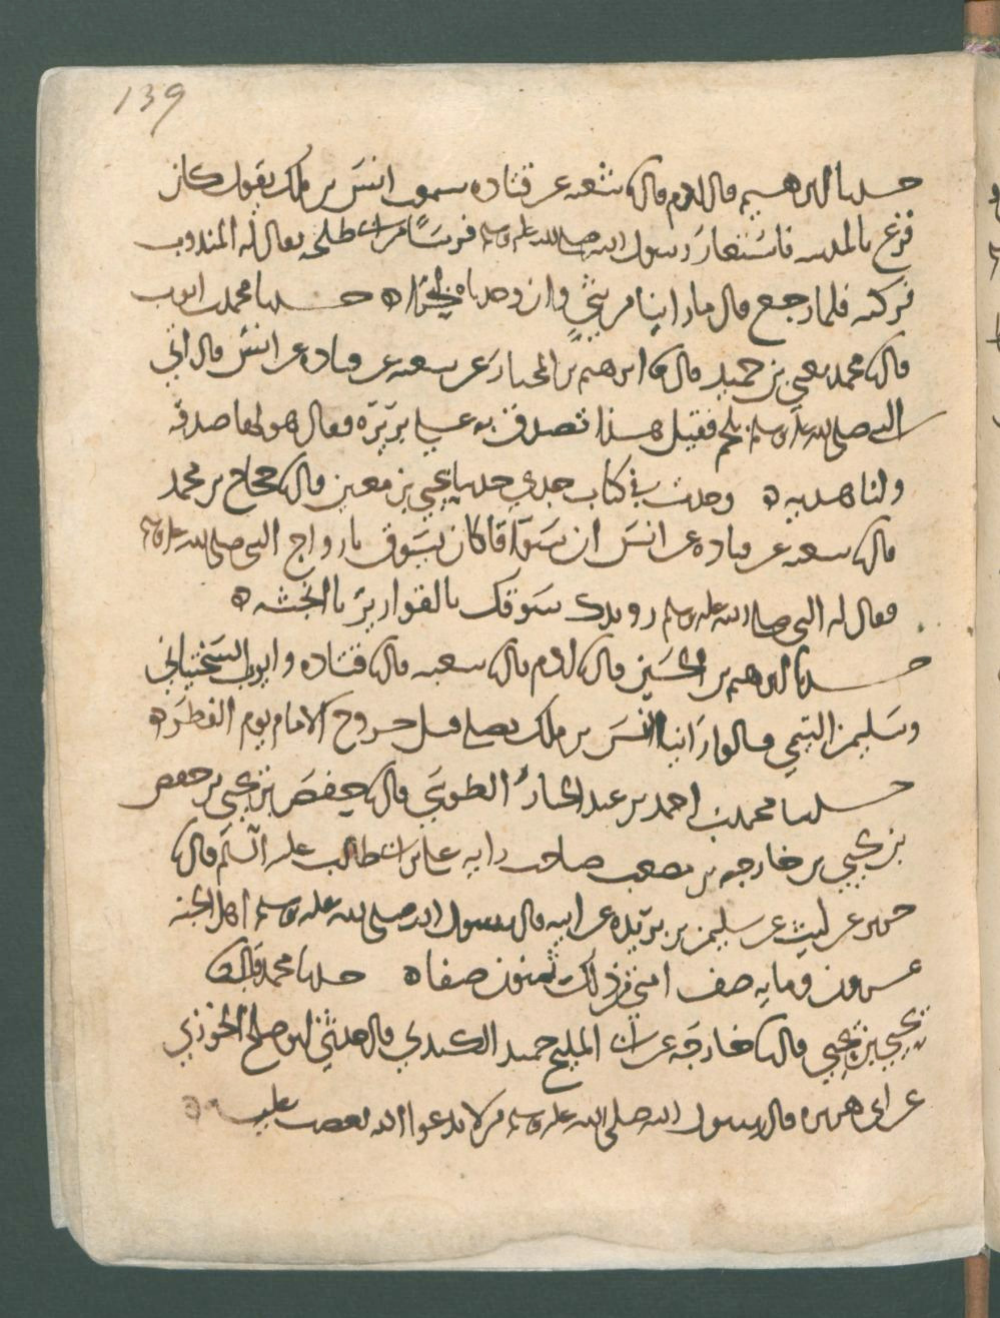 139
حدثنا ابرهيم قال ادم قال شعبه عن قتاده سمعت انس بن ملك يقول كان
فزع بالمدينه فاستعار رسول الله صلى الله عليه وسلم فرسًا من ابي طلحه يقال له المندوب
فركبه فلما رجع قال ما راينا من شيءٍ وان وجدناه لبحرًا ه حدثنا محمد ايوب
قال محمد بن يحيى بن حميد قال ابرهيم بن المختار عن شعبه عن قتاده عن انس قال اتي
النبي صلى الله عليه وسلم بلحم فقيل هذا تصدق به على بريره فقال هو لها صدقه
ولنا هديه ه وجدت في كتاب جدي حدثنا يحيى بن معين قال حجاج بن محمد
قال شعبه عن قتاده عن انس ان سواقا كان يسوق بازواج النبي صلى الله عليه وسلم
فقال له النبي صلى الله عليه وسلم رويدك سوقك بالقوارير يا انجشه ه
حدثنا ابرهيم بن الحسين قال ادم قال شعبه قال قتاده وايوب السختياني
وسليمن التيمي قالوا راينا انس بن ملك يصلي قبل خروج الامام يوم الفطر ه
حدثنا محمد بن احمد بن عبد الجبار الطوسي قال حفص بن يحيى بن حفص
بن يحيى بن خارجه بن مصعب صاحب رايه علي بن ابي طالب عليه السلم قال
عن ليث عن سليمن بن بريده عن ابيه قال رسول الله صلى الله عليه وسلم اهل الجنه
عشرون ومايه صف امتي من ذلك ثمنون صفا ه حدثنا محمد قال
يحيى بن يحيى قال خارجه عن ابي المليح حميد الكندي قال حدثني ابو صلح الخوزي
عن ابي هريره قال رسول الله صلى الله عليه وسلم من لا يدعوا الله يغضب عليه ه